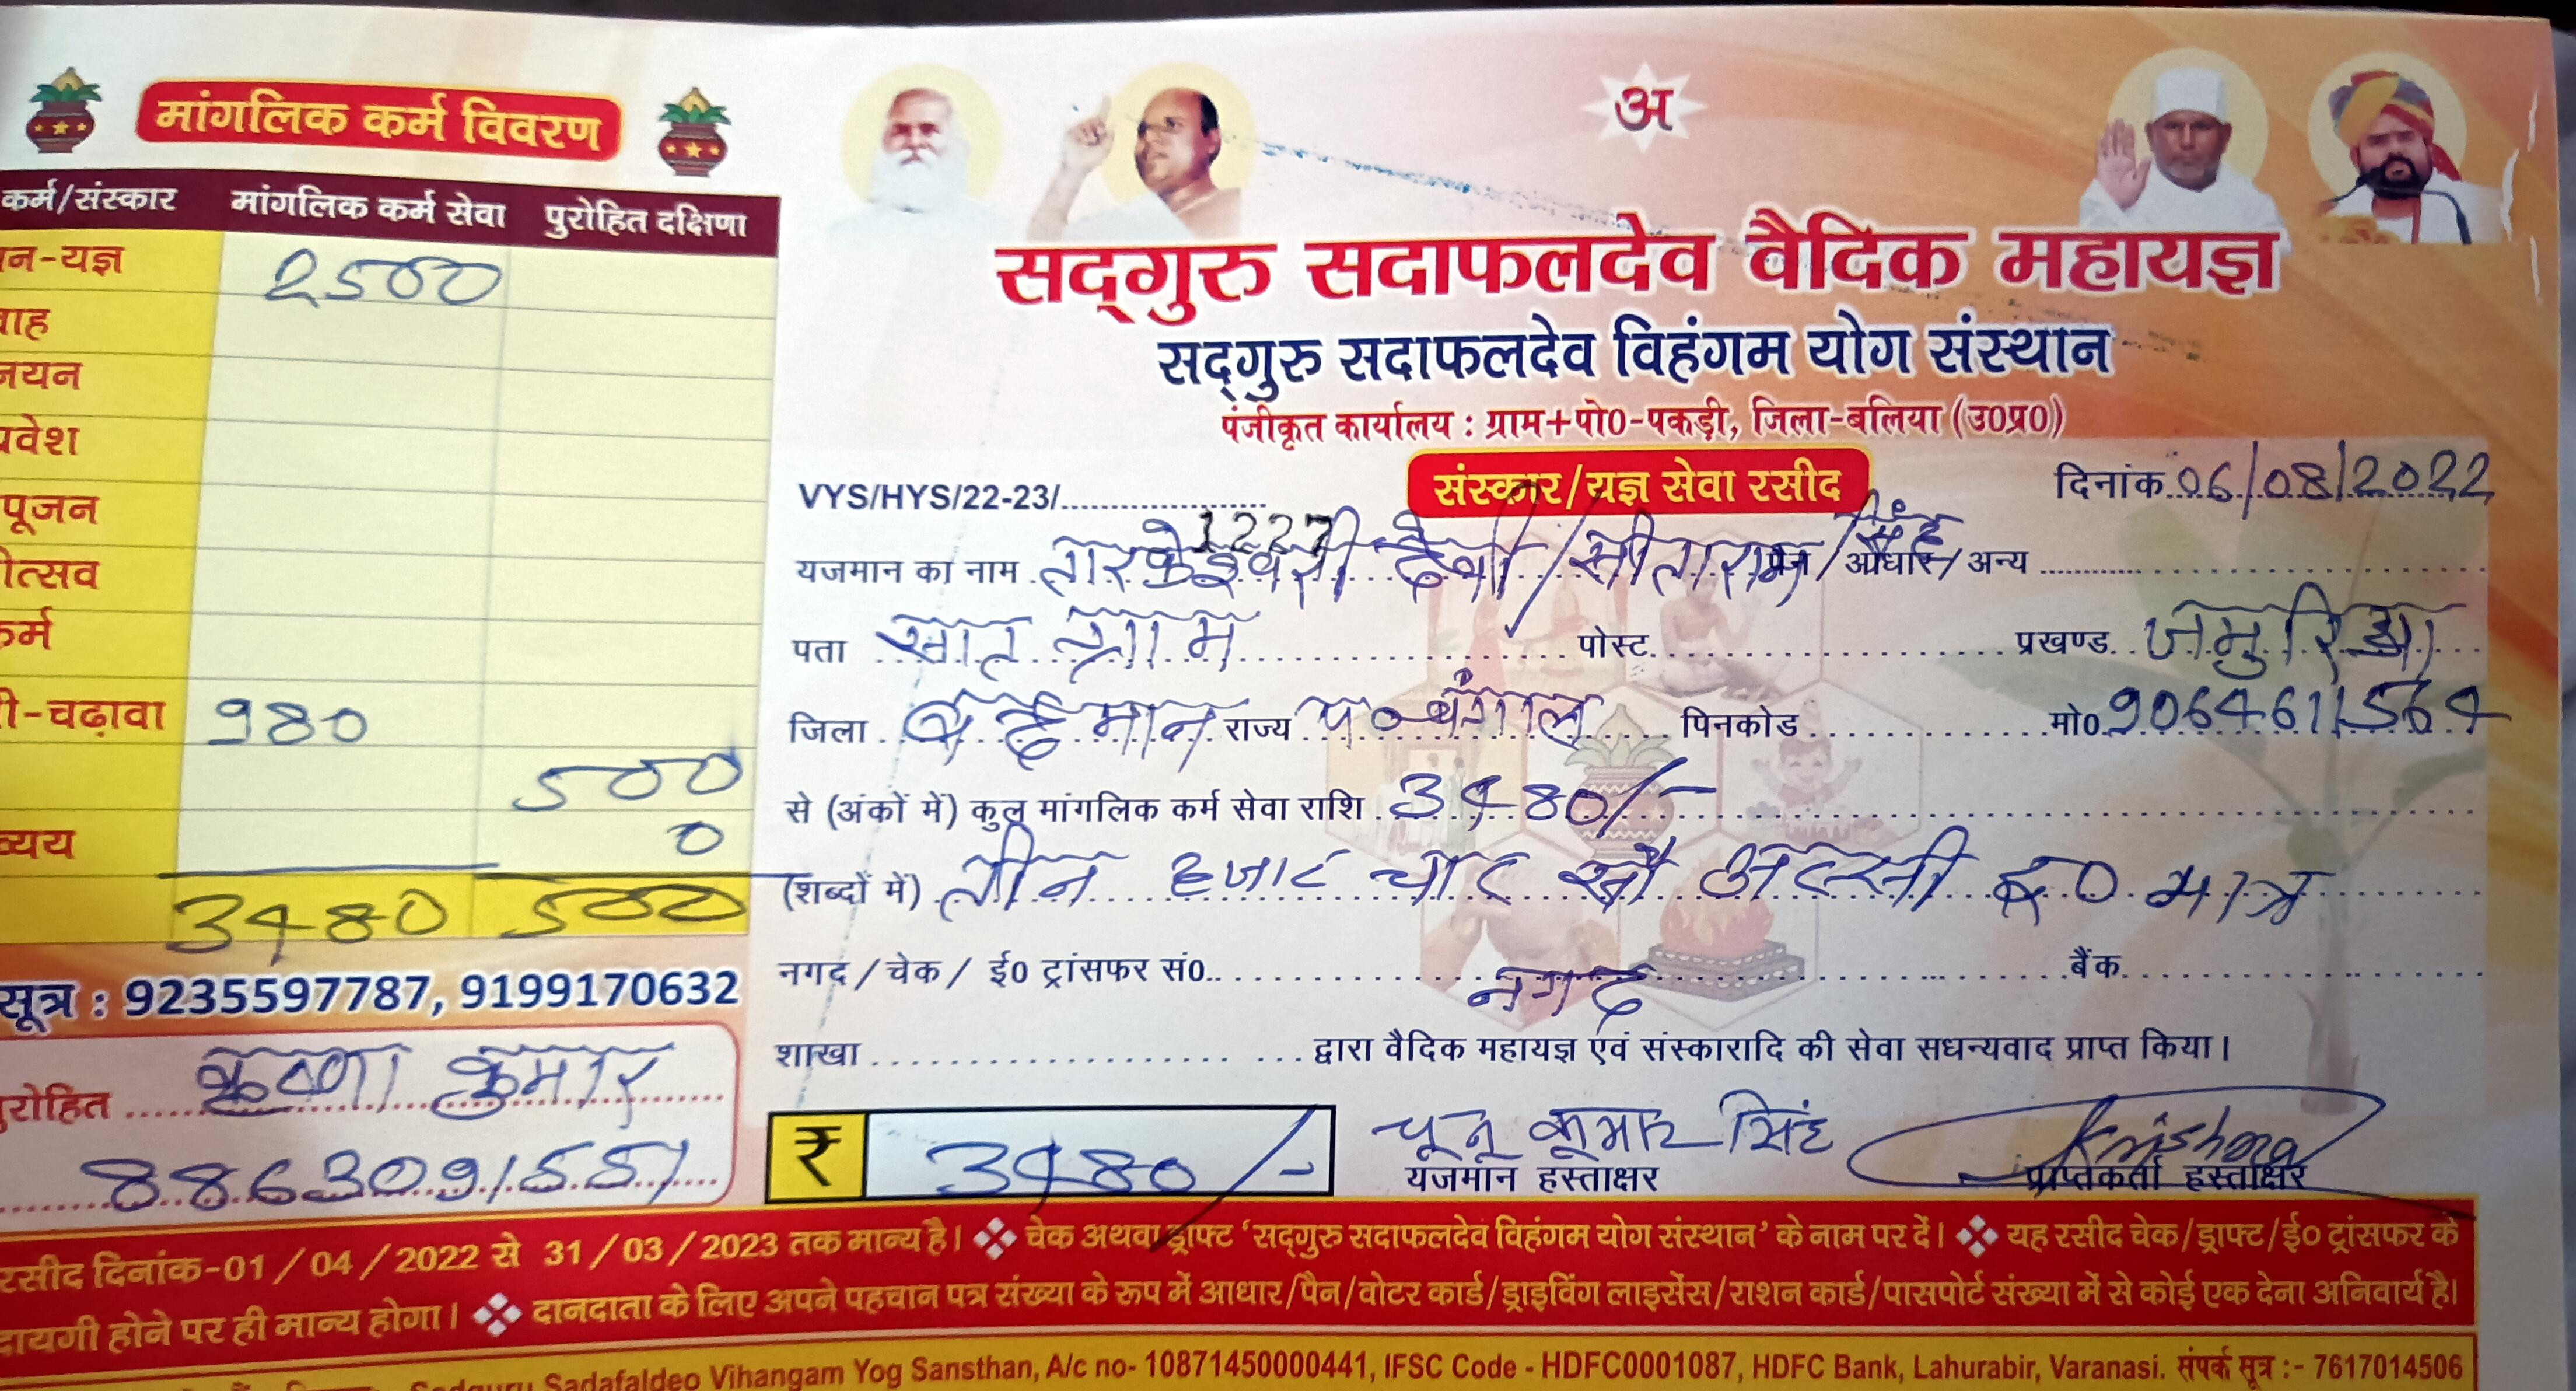 मांगलिक कर्म विवरण
कर्म/संस्कार मांगलिक कर्म सेवा पुरोहित दक्षिणा
न-यज्ञ 2500
वाह
नयन
प्रवेश
पूजन
ोत्सव
कर्म
ी-चढ़ावा 980
500
व्यय 0
3480 500
सूत्र : 9235597787, 9199170632
पुरोहित कृष्णा कुमार
8863091551
अ
सद्गुरु सदाफलदेव वैदिक महायज्ञ
सद्गुरु सदाफलदेव विहंगम योग संस्थान
पंजीकृत कार्यालय : ग्राम+पो0-पकड़ी, जिला-बलिया (उ0प्र0)
VYS/HYS/22-23/ 1227 संस्कार/यज्ञ सेवा रसीद दिनांक 06/08/2022
यजमान का नाम तारकेश्वरी देवी/सीताराम सिंह पैन/आधार/अन्य
पता सात ग्राम पोस्ट प्रखण्ड जमुरिआ
जिला बर्द्धमान राज्य प०बंगाल पिनकोड मो0 9064611564
से (अंकों में) कुल मांगलिक कर्म सेवा राशि 3480/-
(शब्दों में) तीन हजार चार सौ अस्सी रू0 मात्र
नगद/चेक/ ई0 ट्रांसफर सं0 नगद बैंक
शाखा द्वारा वैदिक महायज्ञ एवं संस्कारादि की सेवा सधन्यवाद प्राप्त किया।
₹ 3480/- चुनू कुमार सिंह Krishna
यजमान हस्ताक्षर प्राप्तकर्ता हस्ताक्षर
रसीद दिनांक-01/04/2022 से 31/03/2023 तक मान्य है। ❖ चेक अथवा ड्राफ्ट 'सद्गुरु सदाफलदेव विहंगम योग संस्थान' के नाम पर दें। ❖ यह रसीद चेक/ड्राफ्ट/ई0 ट्रांसफर के
दायगी होने पर ही मान्य होगा। ❖ दानदाता के लिए अपने पहचान पत्र संख्या के रूप में आधार/पैन/वोटर कार्ड/ड्राइविंग लाइसेंस/राशन कार्ड/पासपोर्ट संख्या में से कोई एक देना अनिवार्य है।
Sadguru Sadafaldeo Vihangam Yog Sansthan, A/c no- 10871450000441, IFSC Code - HDFC0001087, HDFC Bank, Lahurabir, Varanasi. संपर्क सूत्र :- 7617014506